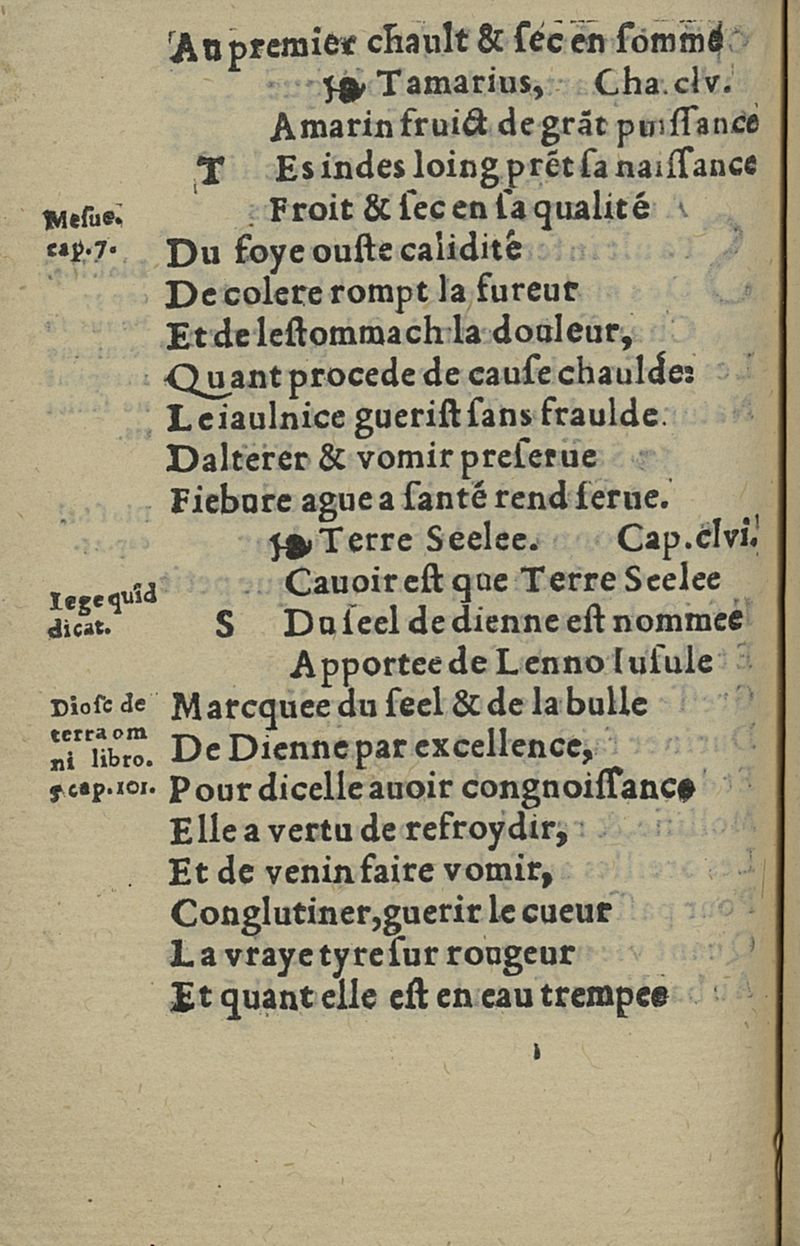 Au premier chault & sec en somme
Tamarius, Cha. clv.
Amarin fruict de grãt puissance
T Es indes loing prẽt sa naissance
Mesue. Froit & sec en sa qualité
cap.7. Du foye ouste calidité
De colere rompt la fureur
Et de lestommach la douleur,
Quant procede de cause chaulde:
Le iaulnice guerist sans fraulde.
Dalterer & vomir preserue
Fiebure ague a santé rend serue.
Terre Seelee. Cap. clvi.
Cauoir est que Terre Seelee
lege quid
dicat. S Du seel de dienne est nommee
Apportee de Lenno Iusule
Diosc de Marcquee du seel & de la bulle
terra om
ni libro. De Dienne par excellence,
5 cap.101. Pour dicelle auoir congnoissance
Elle a vertu de refroydir,
Et de venin faire vomir,
Conglutiner, guerir le cueur
La vraye tyre sur rougeur
Et quant elle est en eau trempee